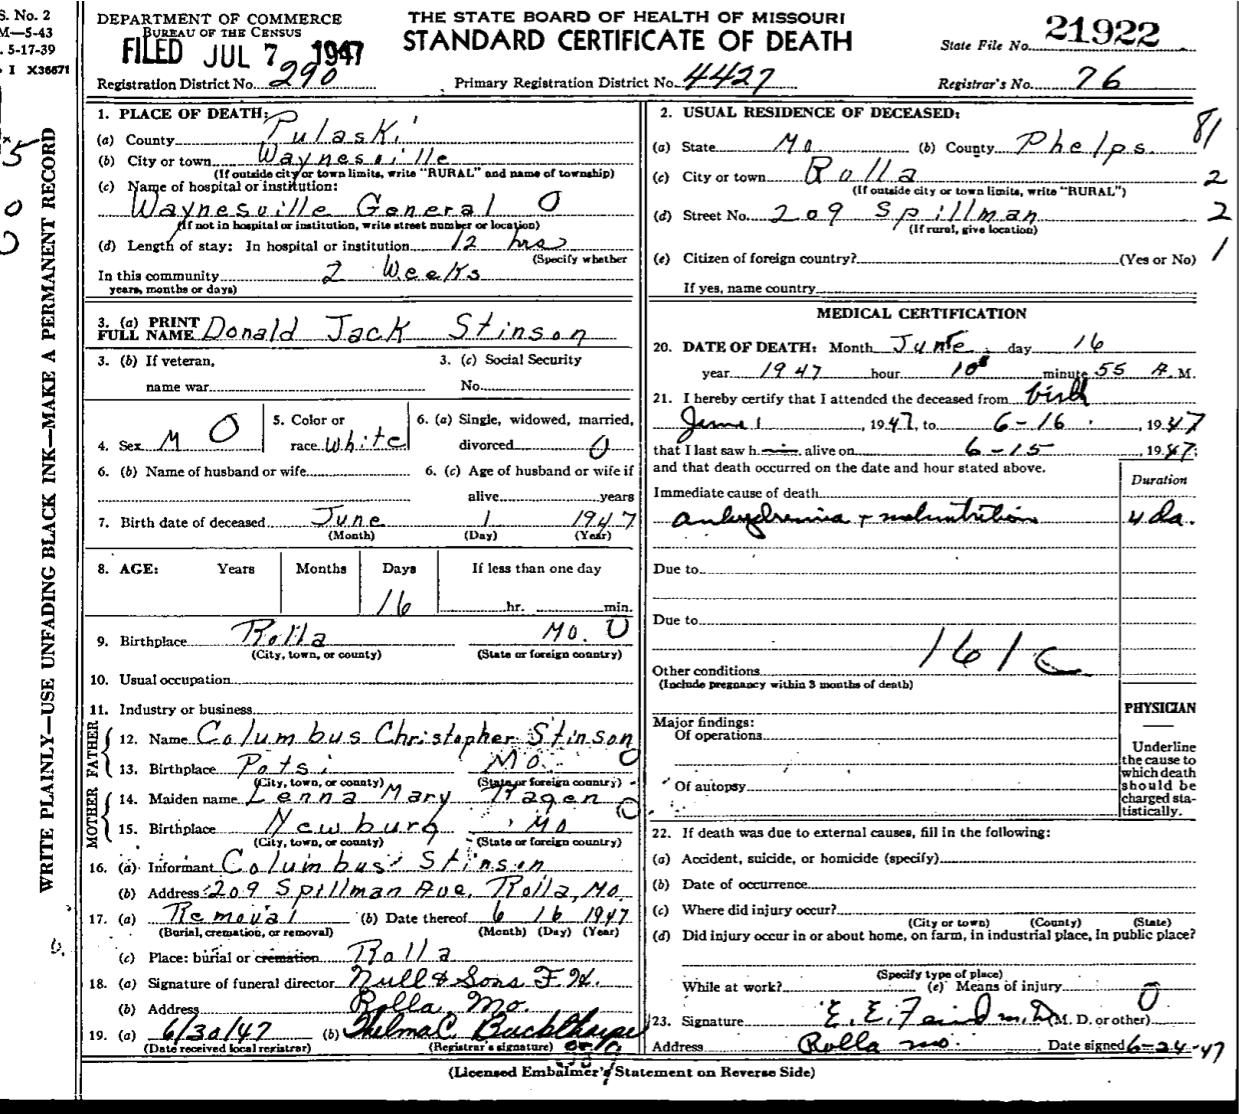 S. No. 2
M—5-43
5-17-39
I X36671
DEPARTMENT OF COMMERCE
BUREAU OF THE CENSUS
FILED JUL 7 1947
THE STATE BOARD OF HEALTH OF MISSOURI
STANDARD CERTIFICATE OF DEATH
State File No. 21922
Registration District No. 290
Primary Registration District No. 4427
Registrar's No. 76
WRITE PLAINLY—USE UNFADING BLACK INK—MAKE A PERMANENT RECORD
1. PLACE OF DEATH:
(a) County Pulaski
(b) City or town Waynesville
(If outside city or town limits, write "RURAL" and name of township)
(c) Name of hospital or institution:
Waynesville General 0
(If not in hospital or institution, write street number or location)
(d) Length of stay: In hospital or institution 12 hrs
(Specify whether
In this community 2 Weeks
years, months or days)
3. (a) PRINT FULL NAME Donald Jack Stinson
3. (b) If veteran,
name war
3. (c) Social Security
No.
4. Sex M 0
5. Color or
race White
6. (a) Single, widowed, married,
divorced 0
6. (b) Name of husband or wife
6. (c) Age of husband or wife if
alive years
7. Birth date of deceased June 1 1947
(Month) (Day) (Year)
8. AGE: Years Months Days If less than one day
16 hr. min.
9. Birthplace Rolla Mo. 0
(City, town, or county) (State or foreign country)
10. Usual occupation
11. Industry or business
FATHER
12. Name Columbus Christopher Stinson
13. Birthplace Potsi Mo. 0
(City, town, or county) (State or foreign country)
MOTHER
14. Maiden name Lenna Mary Hagen
15. Birthplace Newburg Mo
(City, town, or county) (State or foreign country)
16. (a) Informant Columbus Stinson
(b) Address 209 Spillman Ave, Rolla, Mo.
17. (a) Removal (b) Date thereof 6 16 1947
(Burial, cremation, or removal) (Month) (Day) (Year)
(c) Place: burial or cremation Rolla
18. (a) Signature of funeral director Null & Sons F.H.
(b) Address Rolla, Mo.
19. (a) 6/30/47 (b) Thelma C. Buckthorpe
(Date received local registrar) (Registrar's signature)
2. USUAL RESIDENCE OF DECEASED:
81
(a) State Mo. (b) County Phelps.
(c) City or town Rolla 2
(If outside city or town limits, write "RURAL")
(d) Street No. 209 Spillman 2
(If rural, give location)
(e) Citizen of foreign country? (Yes or No) 1
If yes, name country
MEDICAL CERTIFICATION
20. DATE OF DEATH: Month June day 16
year 1947 hour 10 minute 55 A. M.
21. I hereby certify that I attended the deceased from birth
June 1, 1947, to 6-16, 1947
that I last saw h alive on 6-15 1947;
and that death occurred on the date and hour stated above.
Duration
Immediate cause of death
anhydremia + malnutrition 4 da.
Due to
Due to
161c
Other conditions
(Include pregnancy within 3 months of death)
Major findings:
Of operations
Of autopsy
PHYSICIAN
Underline
the cause to
which death
should be
charged sta-
tistically.
22. If death was due to external causes, fill in the following:
(a) Accident, suicide, or homicide (specify)
(b) Date of occurrence
(c) Where did injury occur?
(City or town) (County) (State)
(d) Did injury occur in or about home, on farm, in industrial place, in public place?
(Specify type of place)
While at work? (e) Means of injury 0
23. Signature E. E. Feind M.D. (M. D. or other)
Address Rolla Mo. Date signed 6-24-47
(Licensed Embalmer's Statement on Reverse Side)